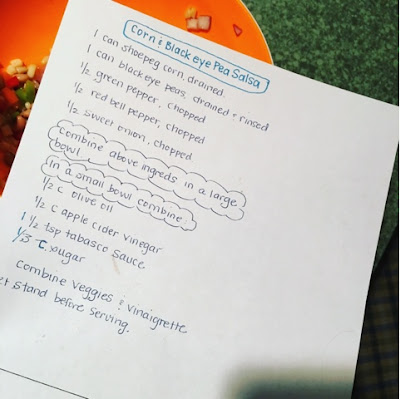 Corn & Black eye Pea Salsa
1 can shoepeg corn, drained
1 can black eye peas, drained & rinsed
1/2 green pepper, chopped
1/2 red bell pepper, chopped
1/2 sweet onion, chopped
Combine above ingreds in a large
bowl
In a small bowl combine
1/2 c olive oil
1/2 c apple cider vinegar
1 1/2 tsp tabasco sauce
1/3 c. sugar
Combine veggies & vinaigrette
let stand before serving.